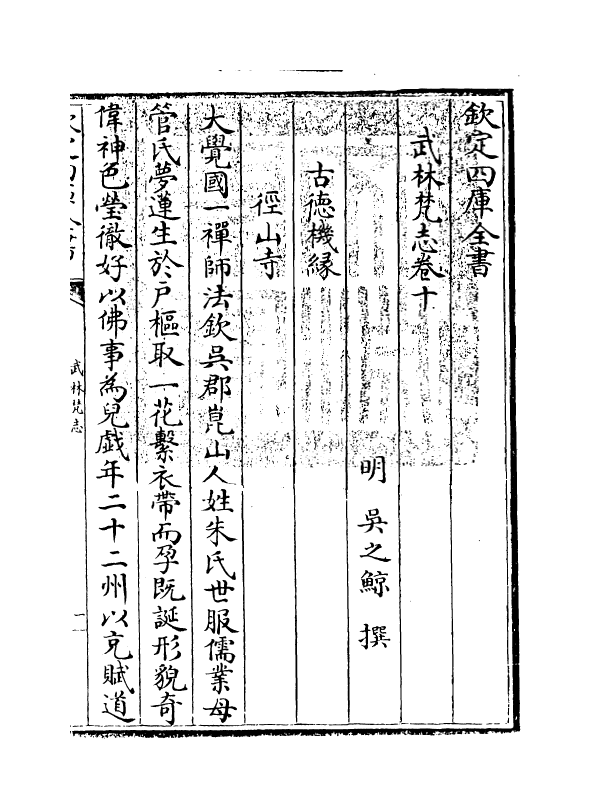 欽定四庫全書
武林梵志卷十
明 吳之鯨 撰
古德機緣
徑山寺
大覺國一禪師法欽吳郡崑山人姓朱氏世服儒業母
管氏夢蓮生於戶樞取一花繫衣帶而孕既誕形貌奇
偉神色瑩徹好以佛事為兒戲年二十二州以充賦道
武林梵志